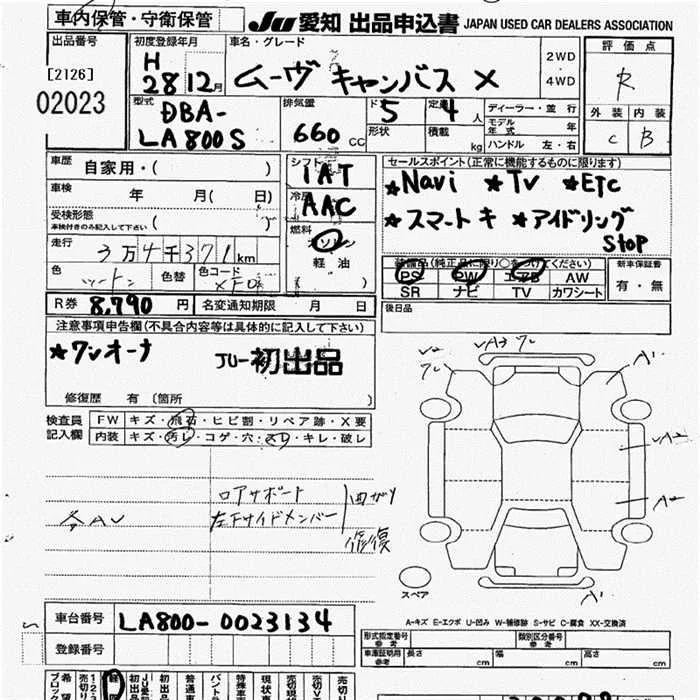 車内保管・守衛保管
JU 愛知 出品申込書 JAPAN USED CAR DEALERS ASSOCIATION
出品番号
[2126]
02023
初度登録年月
H
28 12月
車名・グレード
ムーヴ キャンバス X
2WD
4WD
評価点
R
外装 内装
C B
型式
DBA-
LA800S
排気量
660 CC
ドア
5
形状
定員
4 人
積載
kg
ディーラー・並行
モデル年式 年
ハンドル 左・右
車歴
自家用・( )
車検
年 月( 日)
受検形態
車検付きのみ記入して下さい ( )
走行
3万4千371km
色
ツートン
色替
色コード
XF0
シフト
IAT
冷房
AAC
燃料
ガソリン
軽油
( )
セールスポイント(正常に機能するものに限ります)
★Navi ★TV ★ETC
★スマートキ ★アイドリング
Stop
装備品(純正品に限り○をつけてください)
PS PW エアB AW
SR ナビ TV カワシート
新車保証書
有・無
後日品
R券 8,790 円 名変通知期限 月 日
注意事項申告欄(不具合内容等は具体的に記入して下さい)
★ワンオーナ JU-初出品
修復歴 有 〔箇所 〕
検査員記入欄
FW キズ・飛石・ヒビ割・リペア跡・X要
内装 キズ・汚レ・コゲ・穴・スレ・キレ・破レ
ロアサポート
左下サイドメンバー
曲がり
修復
A'
A2
A2
A'
スペア
A-キズ E-エクボ U-凹み W-補修跡 S-サビ C-腐食 XX-交換済
車台番号 LA800-0023134
登録番号
形式指定番号 参考
類別区分番号 参考
車庫証明用 参考
長さ cm 幅 cm 高さ cm